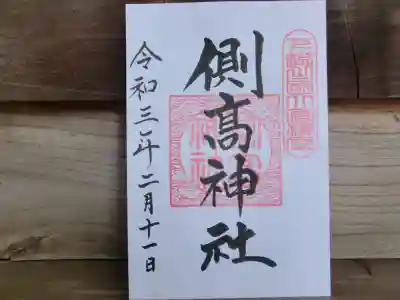 側高神社
令和三年二月十一日